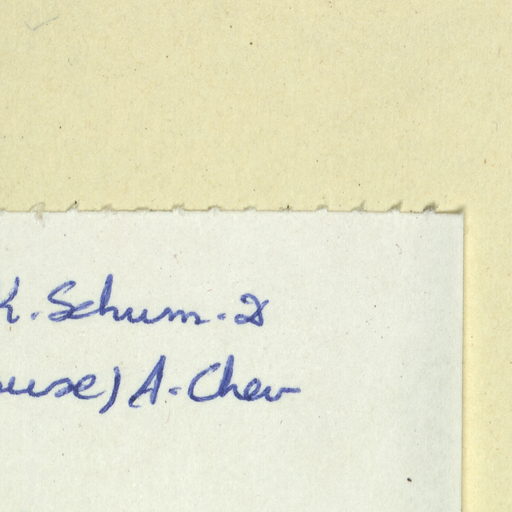 K. Schum. &
use) A. Chev